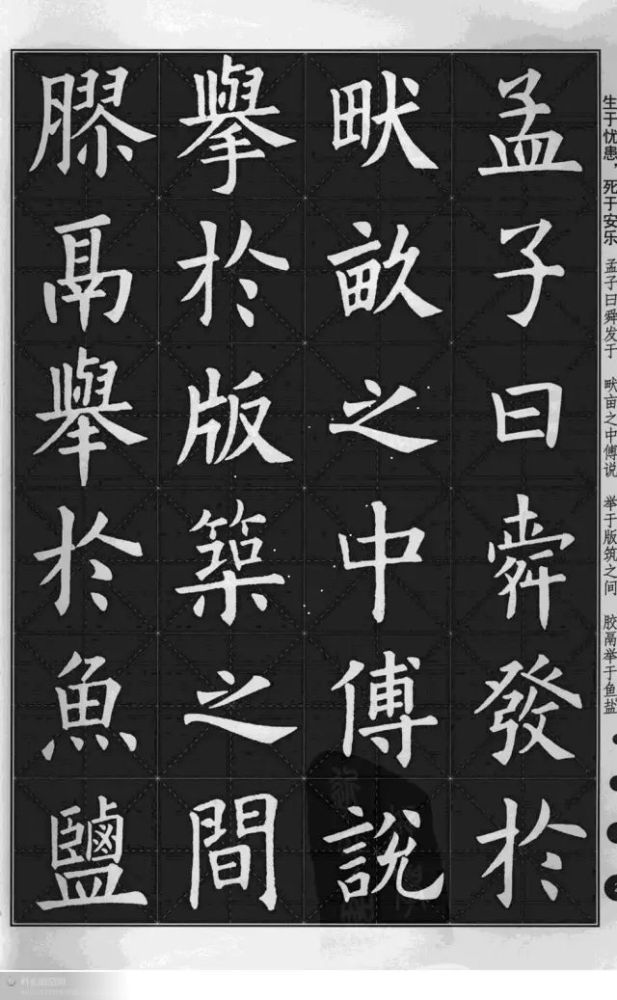 生于忧患，死于安乐 孟子曰舜发于 畎亩之中傅说 举于版筑之间 胶鬲举于鱼盐
孟子曰舜發於
畎畝之中傅說
擧於版築之間
膠鬲舉於魚鹽